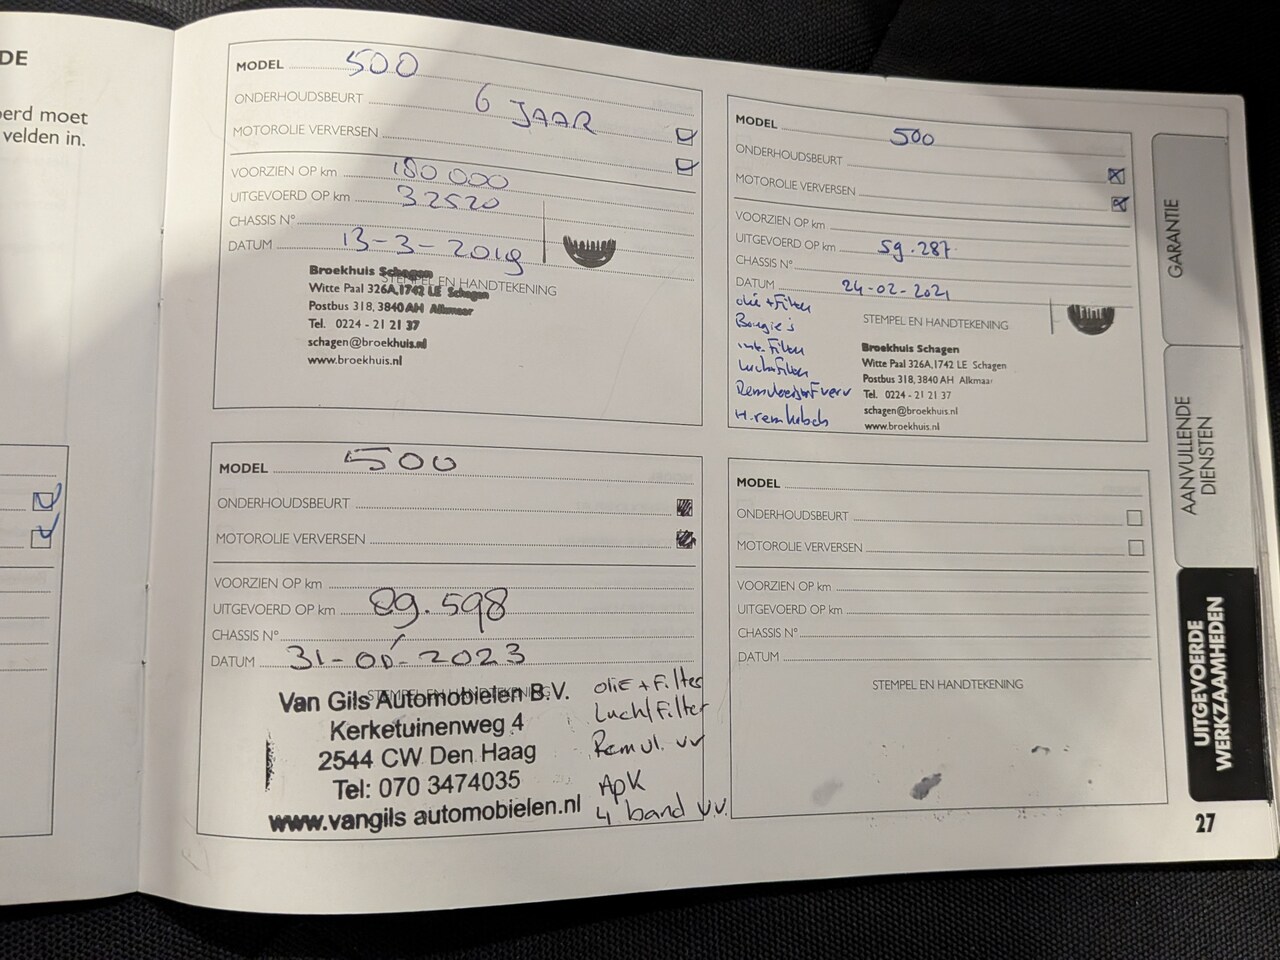 DE
erd moet
velden in.
MODEL 500
ONDERHOUDSBEURT 6 JAAR
MOTOROLIE VERVERSEN
VOORZIEN OP km 180 000
UITGEVOERD OP km 32520
CHASSIS N°
DATUM 13-3-2019
STEMPEL EN HANDTEKENING
Broekhuis Schagen
Witte Paal 326A,1742 LE Schagen
Postbus 318, 3840 AH Alkmaar
Tel. 0224 - 21 21 37
schagen@broekhuis.nl
www.broekhuis.nl
MODEL 500
ONDERHOUDSBEURT
MOTOROLIE VERVERSEN
VOORZIEN OP km
UITGEVOERD OP km 59.287
CHASSIS N°
DATUM 24-02-2021
STEMPEL EN HANDTEKENING
olie + Filter
Bougie's
int. Filter
Luchtfilter
Remvloeistof verv
H. rem
Broekhuis Schagen
Witte Paal 326A,1742 LE Schagen
Postbus 318, 3840 AH Alkmaar
Tel. 0224 - 21 21 37
schagen@broekhuis.nl
www.broekhuis.nl
MODEL 500
ONDERHOUDSBEURT
MOTOROLIE VERVERSEN
VOORZIEN OP km
UITGEVOERD OP km 89.598
CHASSIS N°
DATUM 31-2023
STEMPEL EN HANDTEKENING
Van Gils Automobielen B.V.
Kerketuinenweg 4
2544 CW Den Haag
Tel: 070 3474035
www.vangils automobielen.nl
oliE + Filter
Luchtfilter
Remvl. vv
Apk
4 band v.v.
MODEL
ONDERHOUDSBEURT
MOTOROLIE VERVERSEN
VOORZIEN OP km
UITGEVOERD OP km
CHASSIS N°
DATUM
STEMPEL EN HANDTEKENING
GARANTIE
AANVULLENDE
DIENSTEN
UITGEVOERDE
WERKZAAMHEDEN
27